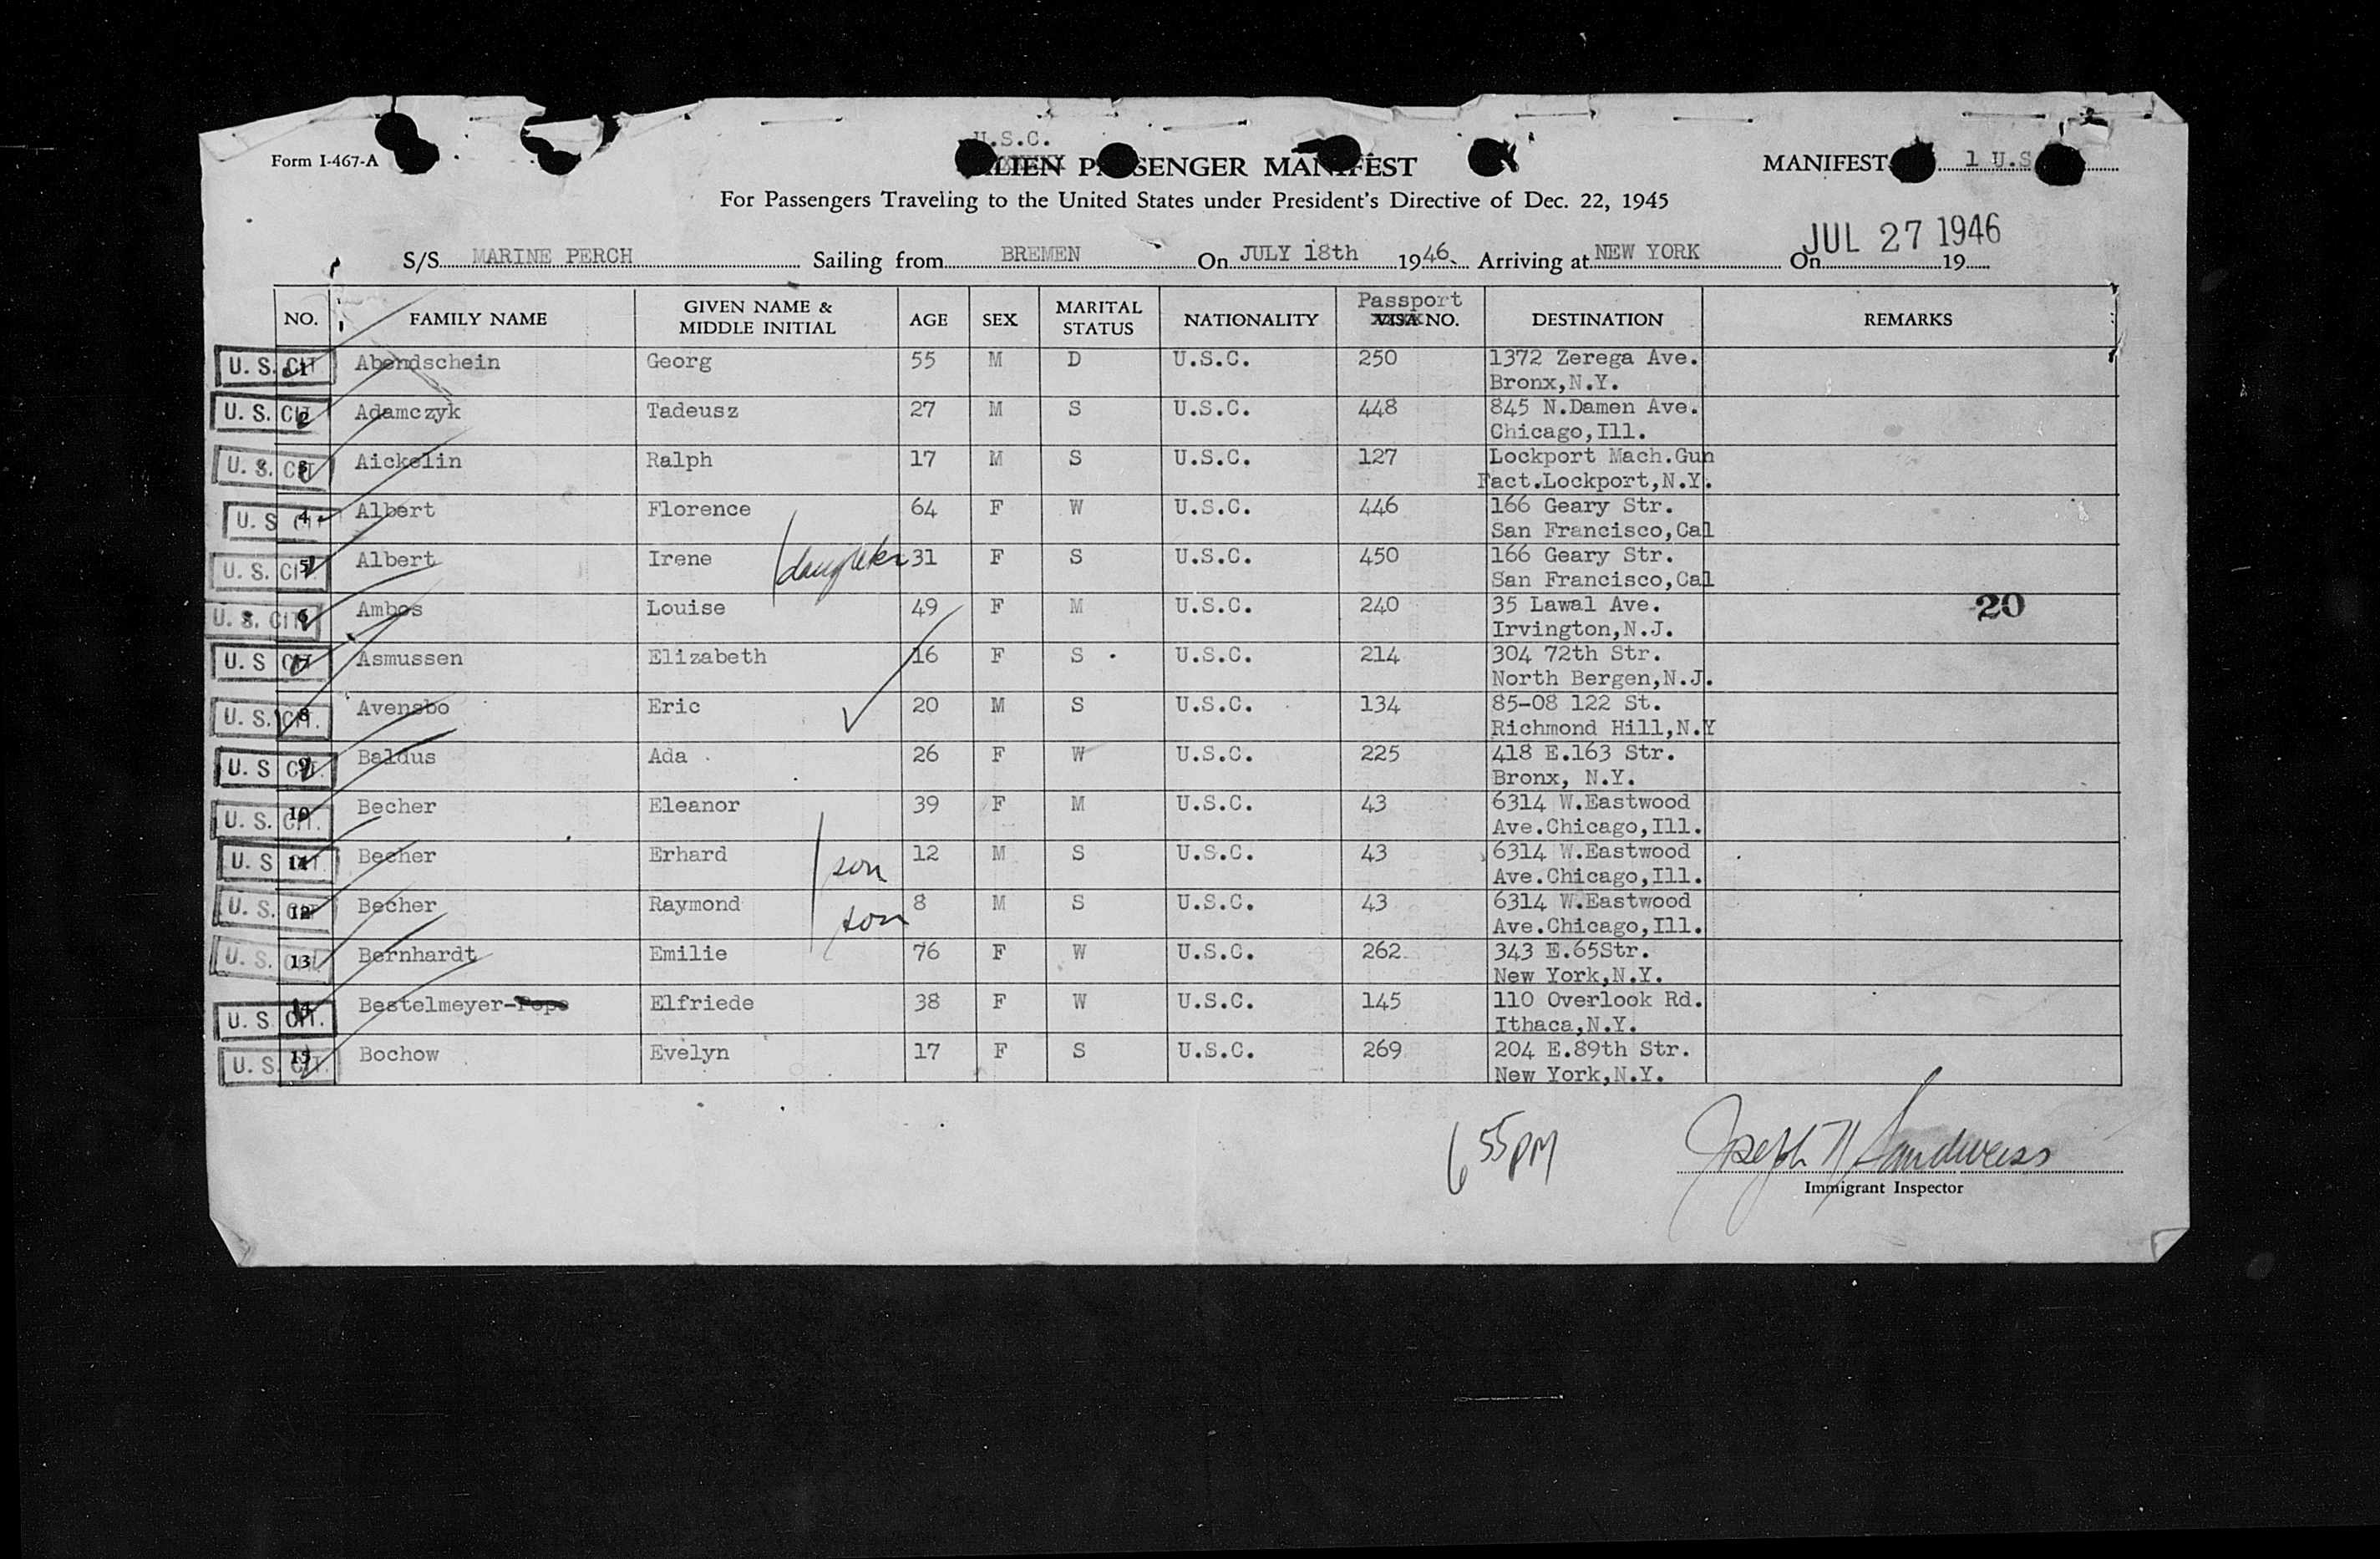 U.S.C.
Form I-467-A
ALIEN PASSENGER MANIFEST
MANIFEST 1 U.S
For Passengers Traveling to the United States under President's Directive of Dec. 22, 1945
S/S MARINE PERCH Sailing from BREMEN On JULY 18th 1946. Arriving at NEW YORK On JUL 27 1946 19
NO. FAMILY NAME GIVEN NAME & MIDDLE INITIAL AGE SEX MARITAL STATUS NATIONALITY Passport VISA NO. DESTINATION REMARKS
U. S. CIT. 1 Abendschein Georg 55 M D U.S.C. 250 1372 Zerega Ave.
Bronx,N.Y.
U. S. CIT. 2 Adamczyk Tadeusz 27 M S U.S.C. 448 845 N.Damen Ave.
Chicago,Ill.
U. S. CIT. 3 Aickelin Ralph 17 M S U.S.C. 127 Lockport Mach.Gun
Fact.Lockport,N.Y.
U. S. CIT. 4 Albert Florence 64 F W U.S.C. 446 166 Geary Str.
San Francisco,Cal
U. S. CIT. 5 Albert Irene daughter 31 F S U.S.C. 450 166 Geary Str.
San Francisco,Cal
U. S. CIT. 6 Ambos Louise 49 F M U.S.C. 240 35 Lawal Ave. 20
Irvington,N.J.
U. S. CIT. 7 Asmussen Elizabeth 16 F S U.S.C. 214 304 72th Str.
North Bergen,N.J.
U. S. CIT. 8 Avensbo Eric 20 M S U.S.C. 134 85-08 122 St.
Richmond Hill,N.Y
U. S. CIT. 9 Baldus Ada 26 F W U.S.C. 225 418 E.163 Str.
Bronx, N.Y.
U. S. CIT. 10 Becher Eleanor 39 F M U.S.C. 43 6314 W.Eastwood
Ave.Chicago,Ill.
U. S. CIT. 11 Becher Erhard son 12 M S U.S.C. 43 6314 W.Eastwood
Ave.Chicago,Ill.
U. S. CIT. 12 Becher Raymond son 8 M S U.S.C. 43 6314 W.Eastwood
Ave.Chicago,Ill.
U. S. CIT. 13 Bernhardt Emilie 76 F W U.S.C. 262 343 E.65Str.
New York,N.Y.
U. S. CIT. 14 Bestelmeyer- Elfriede 38 F W U.S.C. 145 110 Overlook Rd.
Ithaca,N.Y.
U. S. CIT. 15 Bochow Evelyn 17 F S U.S.C. 269 204 E.89th Str.
New York,N.Y.
6 55 PM
Joseph N Sandweiss
Immigrant Inspector